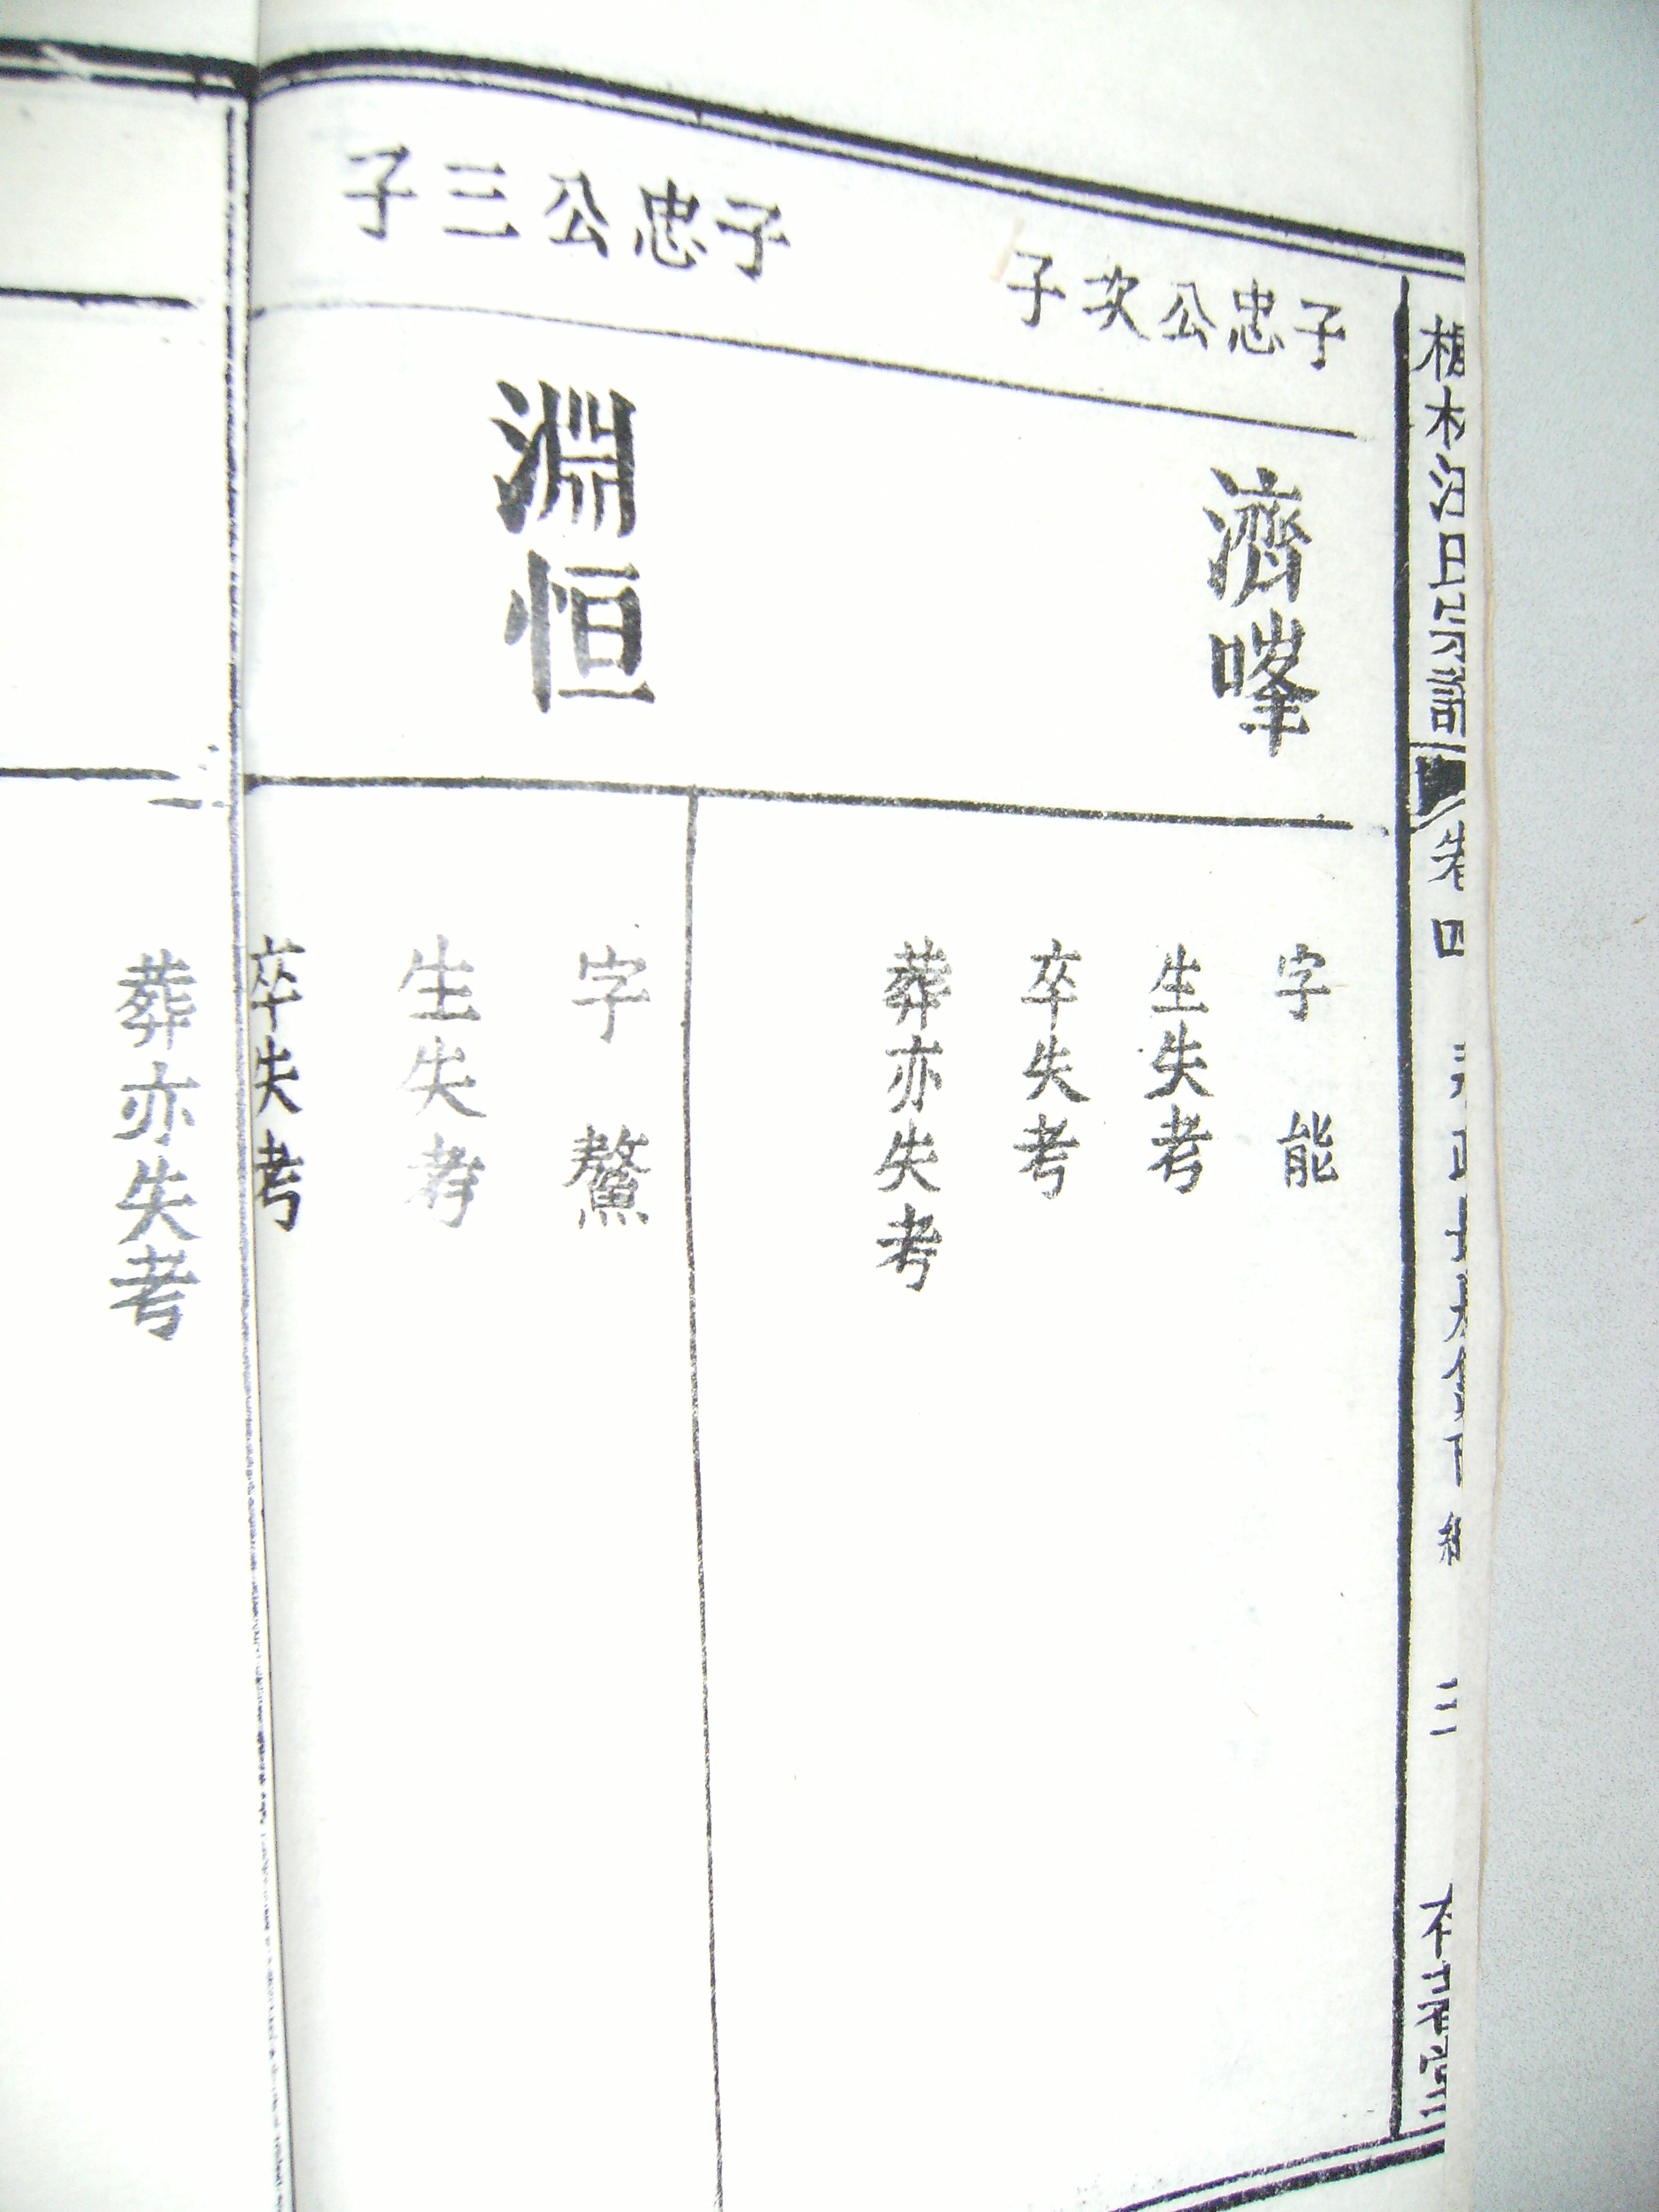 卷四
子忠公次子
濟㟭
字 能
生失考
卒失考
葬亦失考
子忠公三子
淵恒
字 鰲
生失考
卒失考
葬亦失考